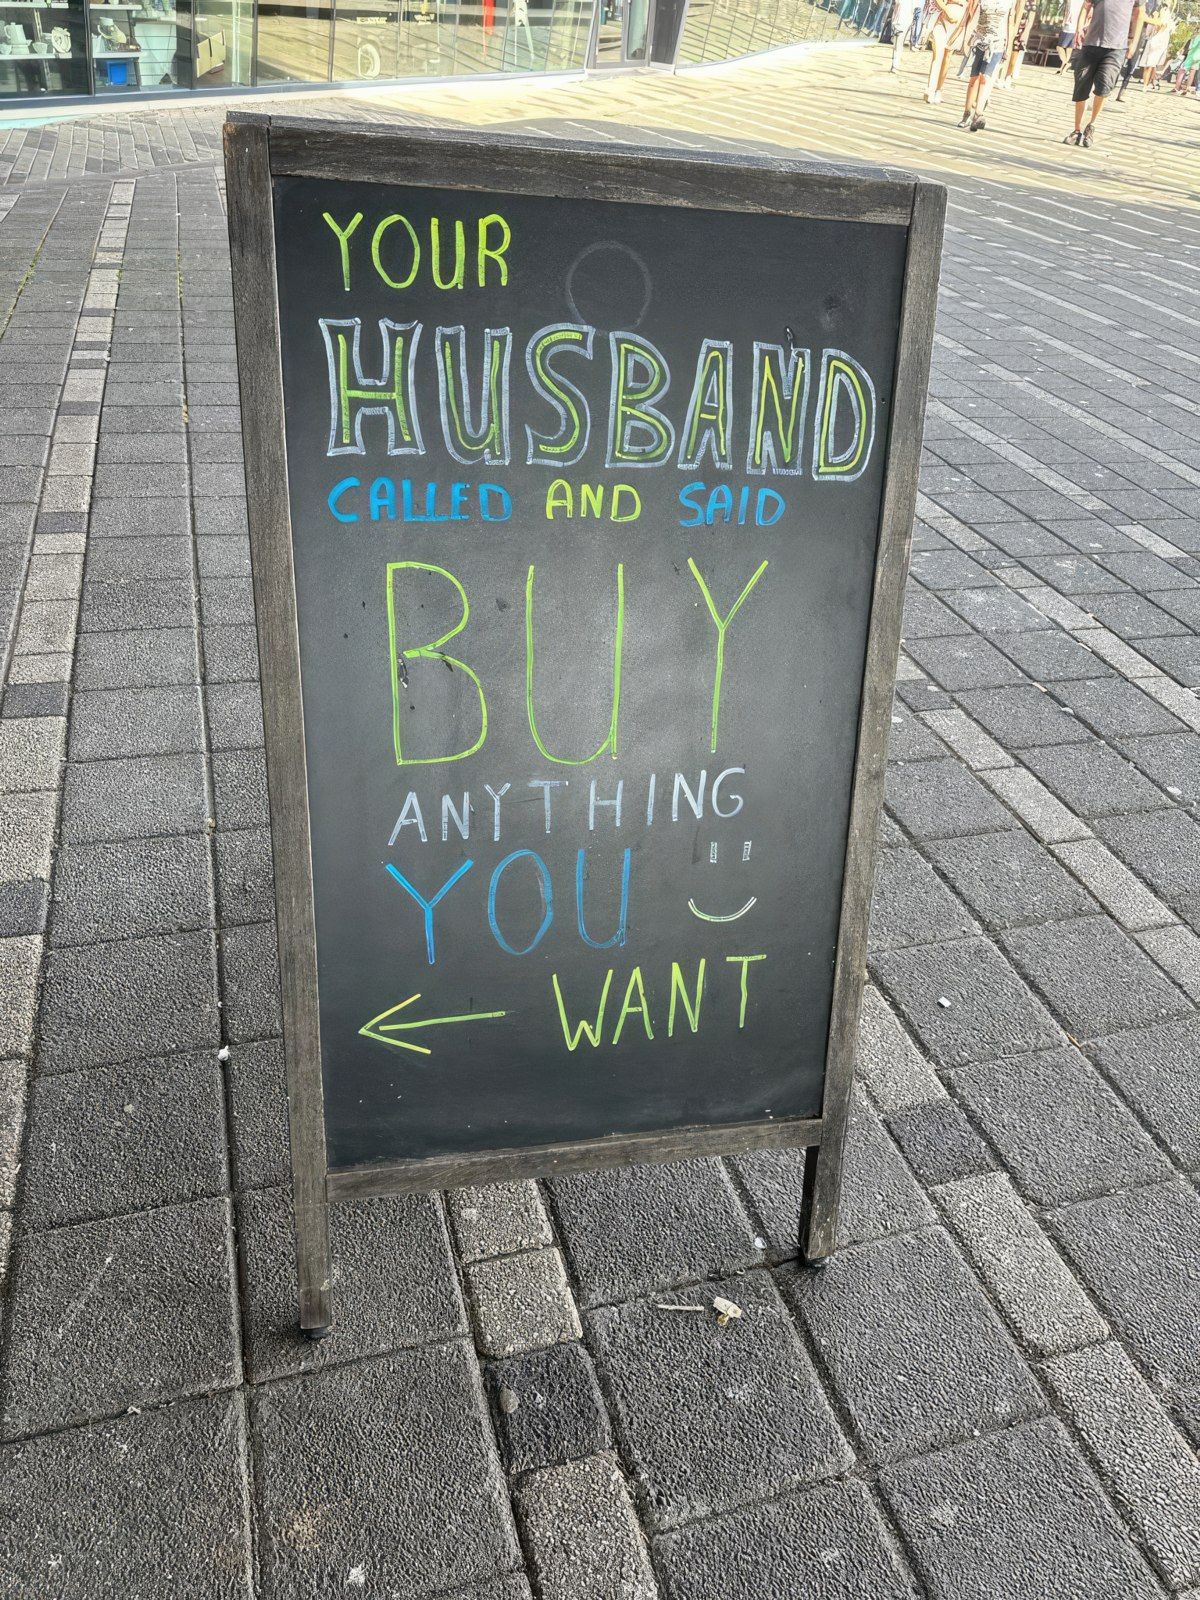 YOUR
HUSBAND
CALLED AND SAID
BUY
ANYTHING
YOU
WANT